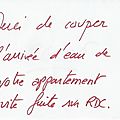 Merci de couper
l'arrivée d'eau de
votre appartement
suite fuite au RDC.